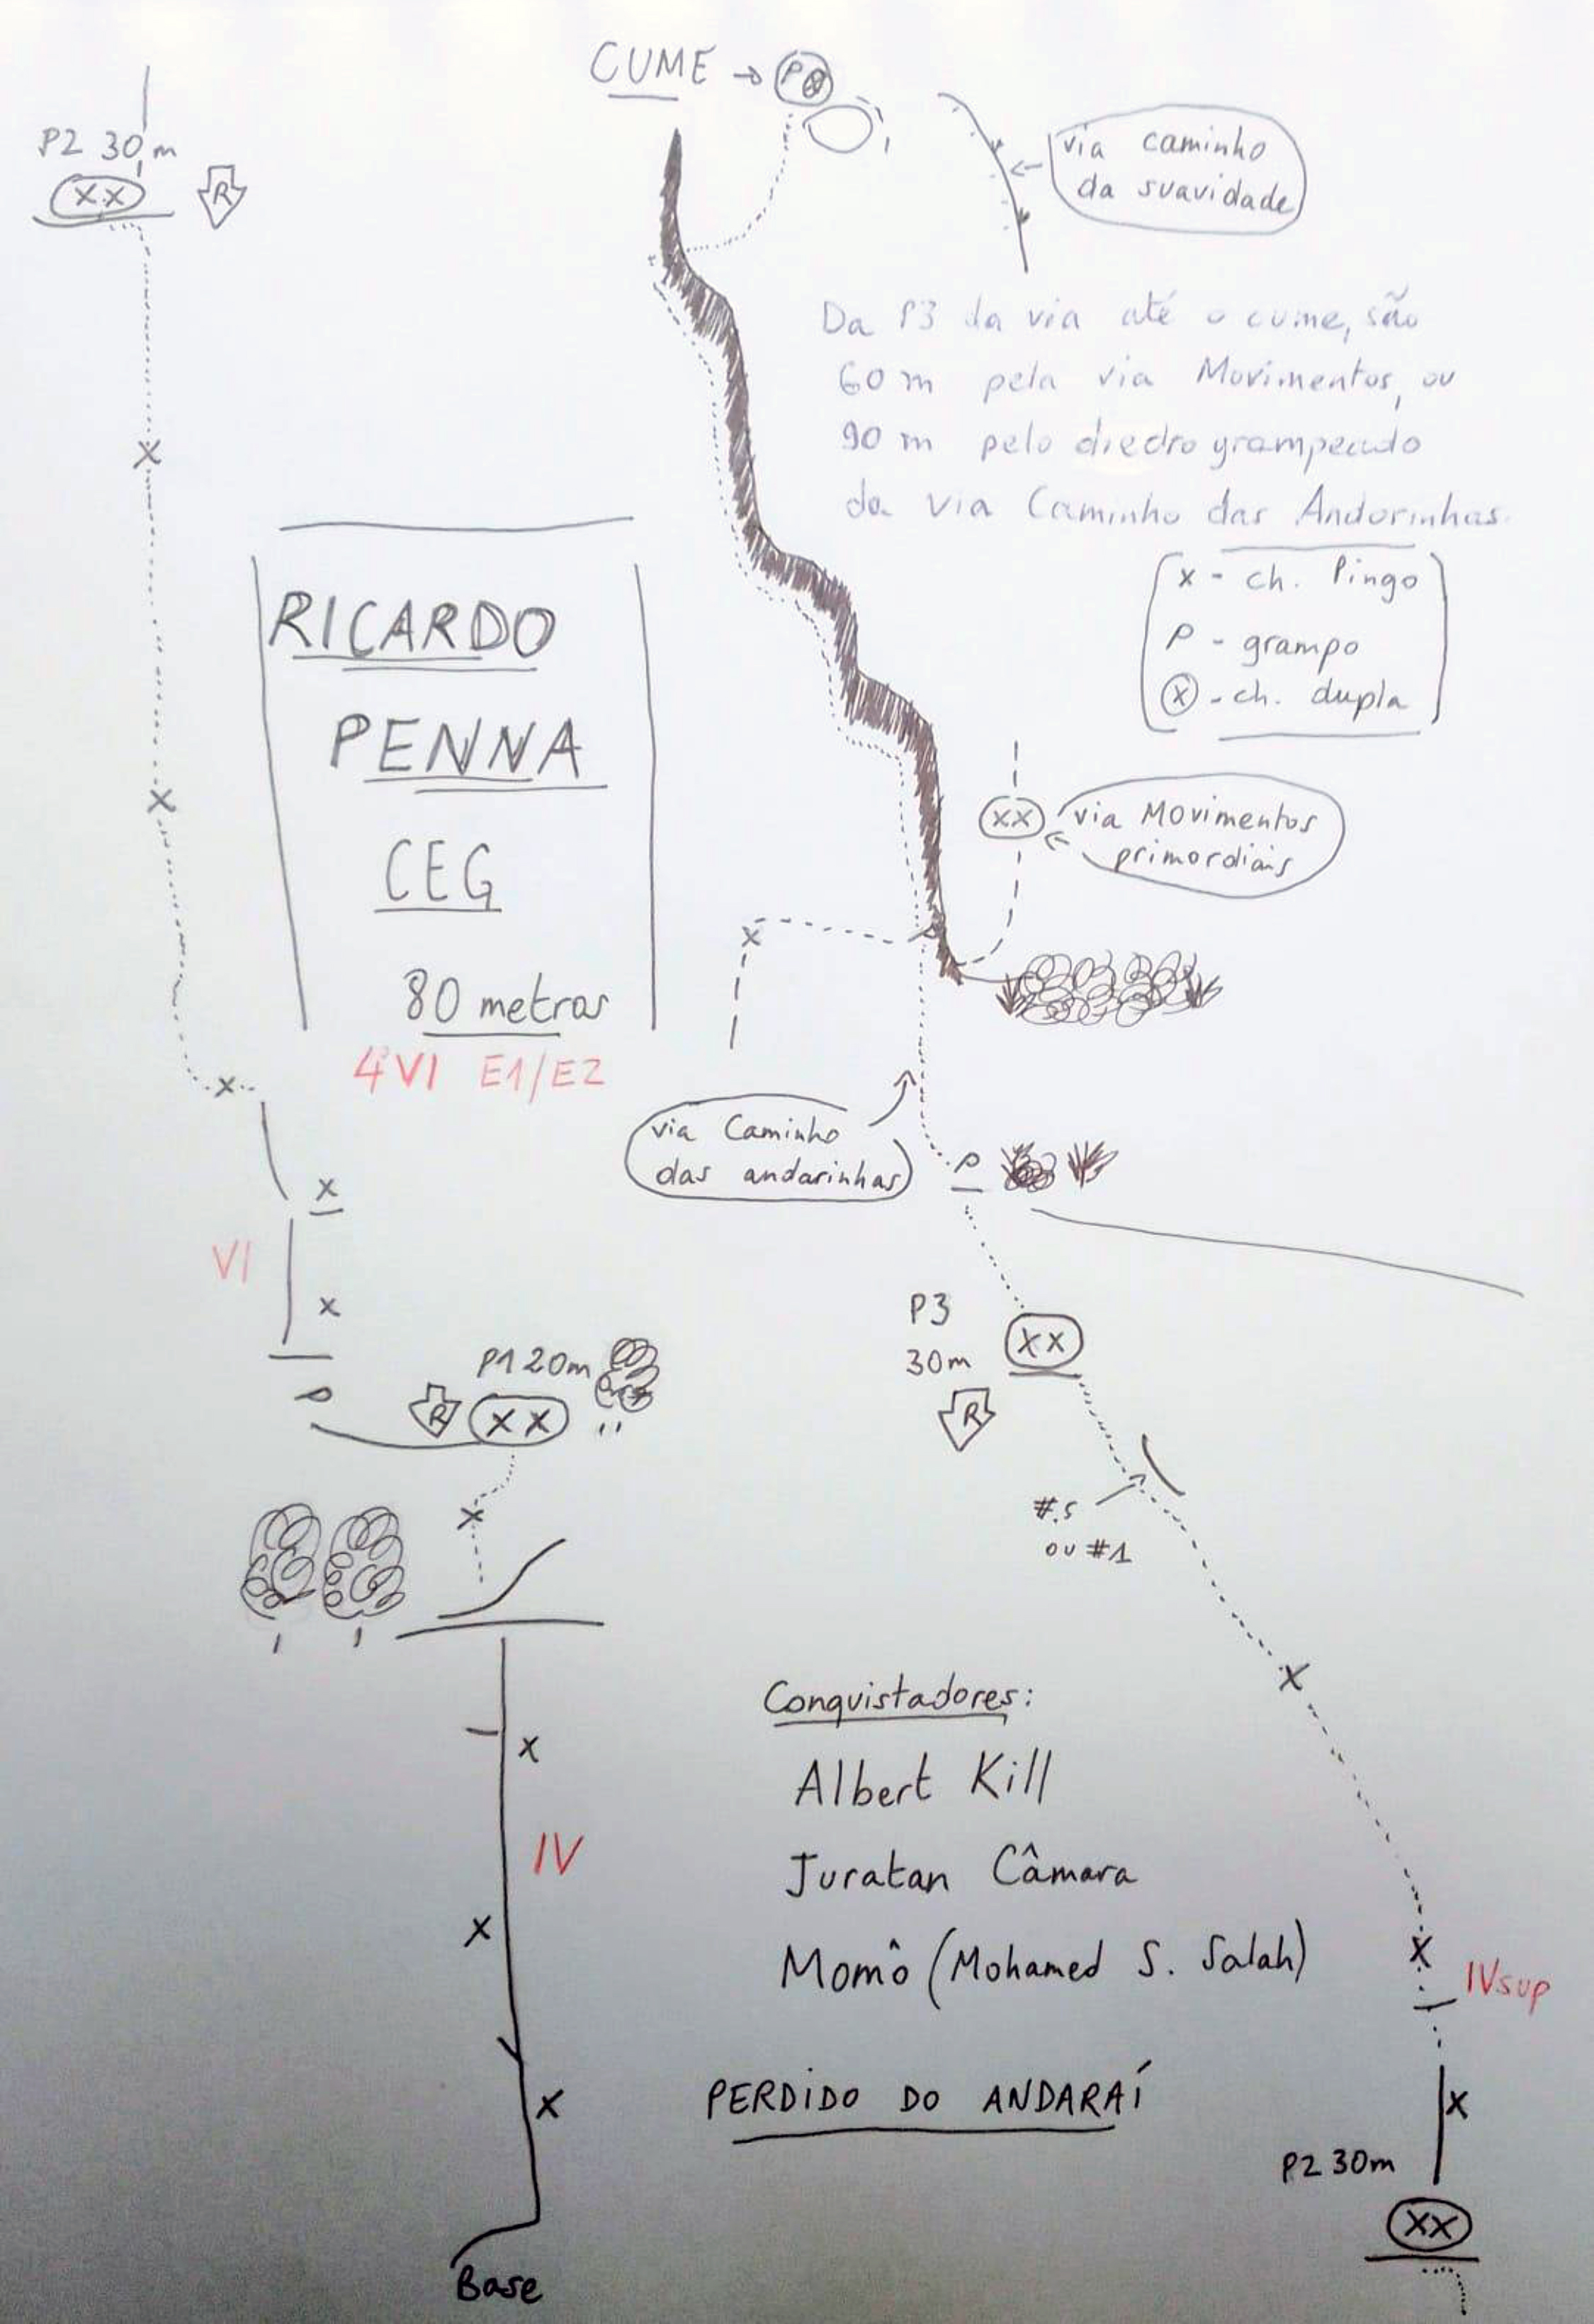 CUME → P⊗
via caminho
da suavidade
P2 30m
XX
R
Da P3 da via até o cume, são
60 m pela via Movimentos, ou
90 m pelo diedro grampeado
da via Caminho das Andorinhas.
X
x - ch. Pingo
P - grampo
ⓧ - ch. dupla
RICARDO
PENNA
CEG
80 metros
4º VI E1/E2
X
XX
via Movimentos
primordiais
P
x
x
via Caminho
das andorinhas
P
x
VI
x
P
P1 20m
R
XX
x
P3
30m
XX
R
#.5
ou #1
x
x
IV
x
x
Base
Conquistadores:
Albert Kill
Juratan Câmara
Momô (Mohamed S. Salah)
PERDIDO DO ANDARAÍ
X
x
IVsup
x
P2 30m
XX